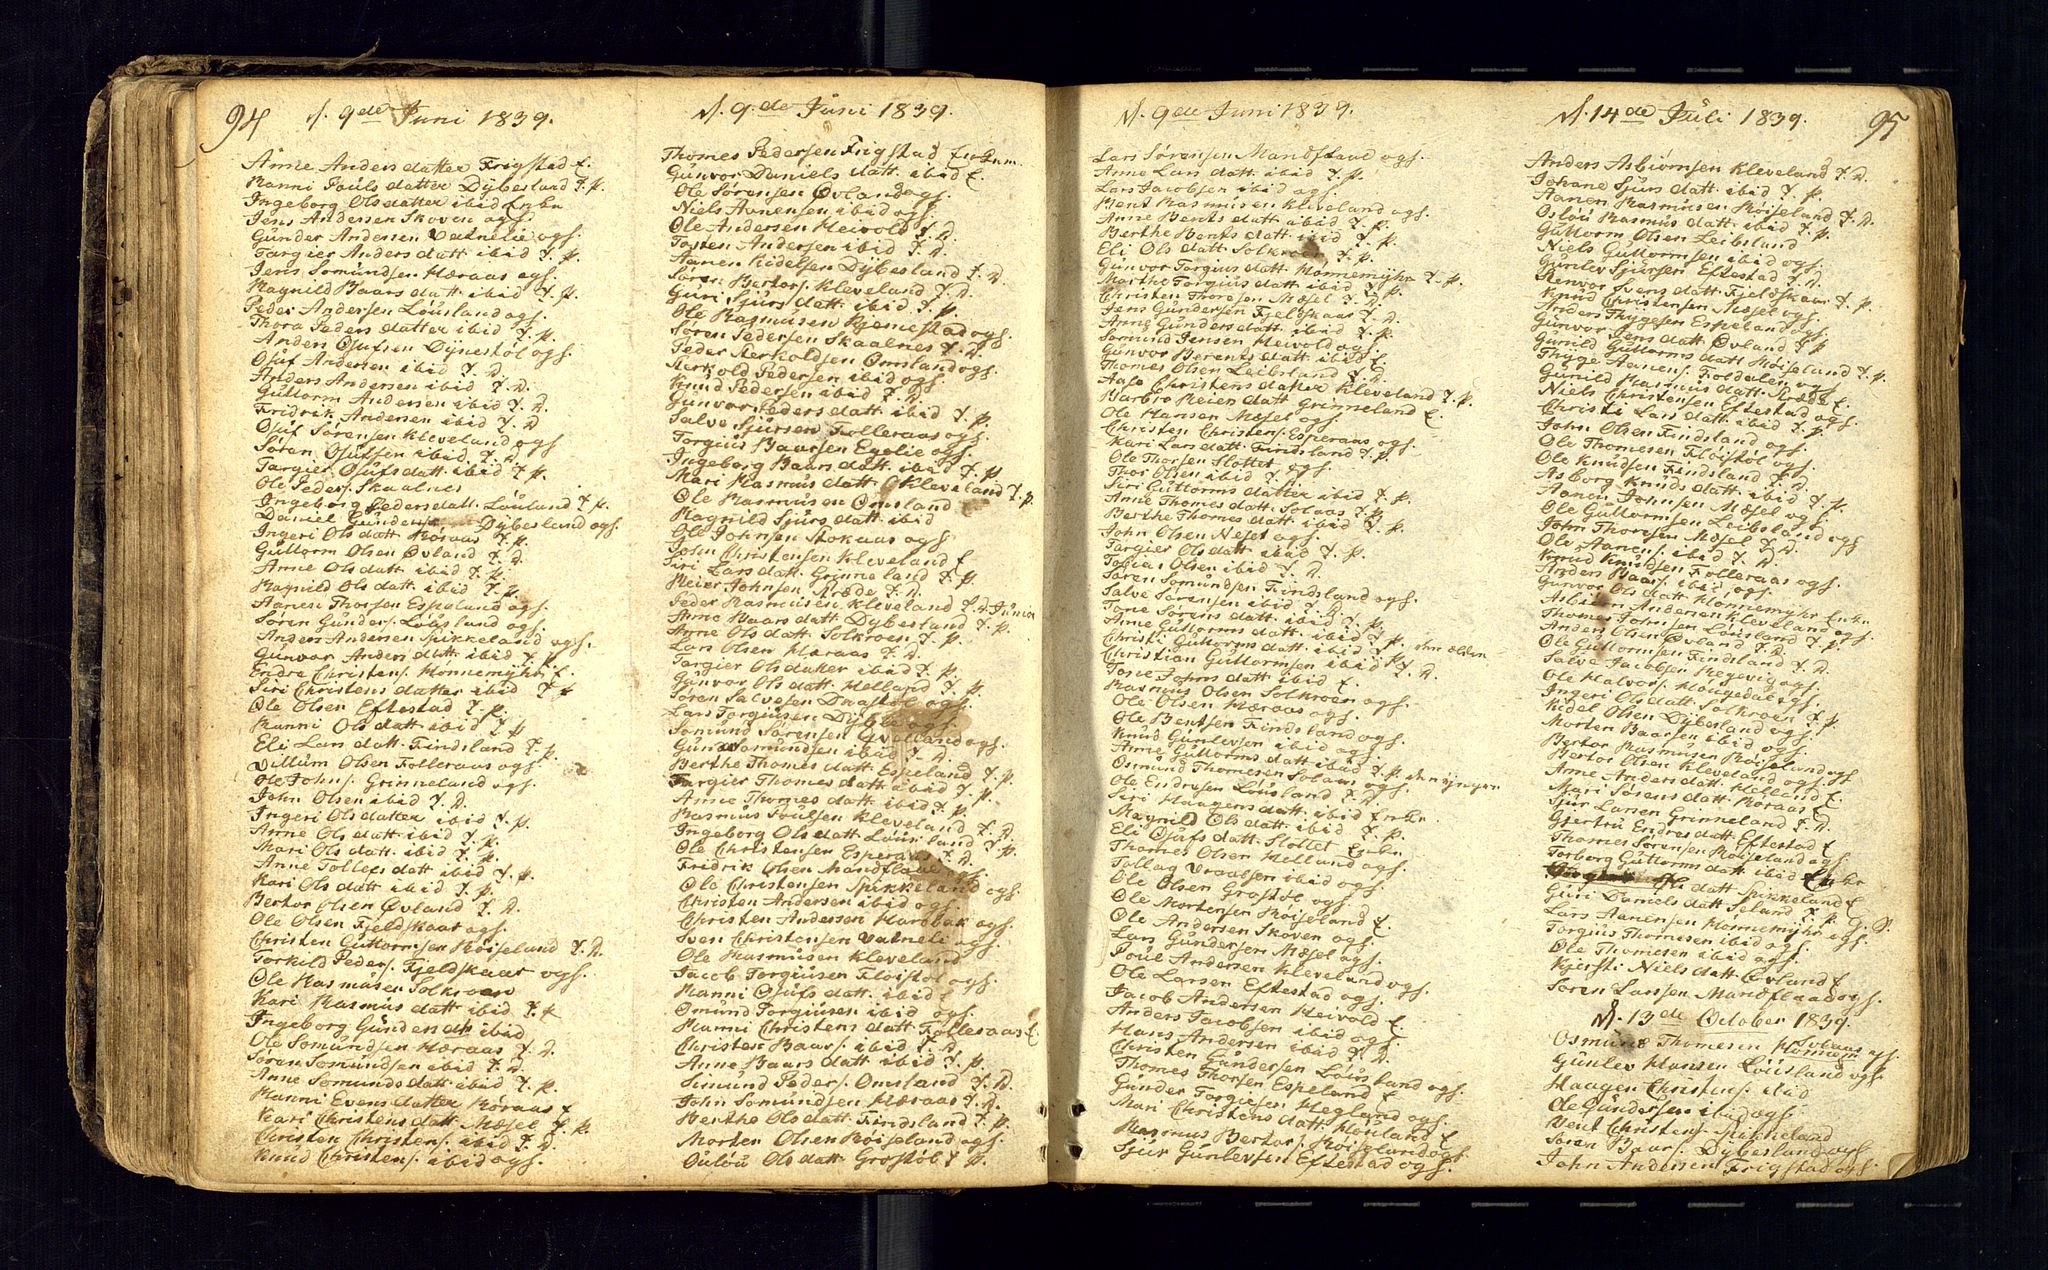 94 d. 9de Juni 1839.
Anne Anders datter Frigstad E.
Ranni Pauls datter Dybesland T. p.
Ingeborg Ols datter ibid Enke
Jens Andersen Skoven ogs.
Gunder Andersen Vatnelie ogs.
Targier Anders datt ibid T. p.
Jens Somundsen Høraas ogs.
Ragnild Baars datt. ibid T. p.
Peder Andersen Lousland ogs.
Thora Peders datter ibid T. p.
Anders Ojufsen Dynestøl ogs.
Ojuf Andersen ibid T. D.
Anders Andersen ibid T. D.
Guttorm Andersen ibid T. D.
Fridrik Andersen ibid T. D
Ojuf Sørensen Kleveland ogs
Søren Ojufsen ibid T. D.
Targier Ojufs datt ibid T. p.
Ole Peders. Skaalnes
Ingeborg Peders datt. Louland T. p.
Daniel Gunders. Dybesland ogs.
Ingeri Ols datt Røraas T. p.
Guttorm Olsen Øvland T. D.
Anne Ols datt ibid T. p.
Ragnild Ols datt. ibid T. p.
Aanen Thorsen Espeland ogs.
Søren Gunders. Lousland ogs.
Anders Andersen Spikkeland ogs.
Gunvor Anders datt ibid T. p.
Endre Christens. Honnemyhr E.
Siri Christens datter ibid T. p
Ole Olsen Eftestad T. p.
Ranni Ols datt ibid T. p
Eli Lars datt. Findsland T. p.
Villum Olsen Folleraas ogs.
Ole Johns. Grinneland ogs.
John Olsen ibid T. D.
Ingeri Ols datter ibid T. p.
Anne Ols datt ibid T. p.
Mari Ols datt. ibid T. p.
Anne Tollefs datt ibid T. p.
Kari Ols datt ibid T. p.
Bertor Olsen Øvland T. D.
Ole Olsen Fjeldskaar ogs.
Christen Guttormsen Røiseland T. D.
Torkild Peders. Fjeldskaar ogs.
Ole Rasmusen Solkroen
Kari Rasmus datt ibid T. p
Ingeborg Gunders dtr ibid
Ole Somundsen Høraas T. D.
Søren Somundsen ibid T. D
Anne Somunds datt ibid T. p.
Ranni Evens datter Røraas E
Kari Christens datt. Mæsel T. p.
Christen Christens. ibid T. D.
Knud Christens. ibid ogs.
d. 9.de Juni 1839.
Thomes Pedersen Frigstad Enkem
Gunvor Daniels datt. ibid E
Ole Sørensen Øvland ogs.
Niels Aanensen ibid ogs.
Ole Andersen Heivold T. D.
Tosten Andersen ibid T. D.
Aanen Kidelsen Dybesland T. D
Søren Bertors. Kleveland T. D.
Guri Sjurs datt ibid T. p
Ole Rasmusen Rømestad ogs.
Søren Pedersen Skaalnes T. D.
Peder Aerkoldsen Omsland ogs.
Aerkold Pedersen ibid ogs.
Knud Pedersen ibid T. D.
Gunvor Peders datt ibid T. p.
Salve Sjursen Folleraas ogs.
Torgius Baarsen Egelie ogs.
Ingeborg Baars datt. ibid T. p
Mari Rasmus datt. Kleveland T. p.
Ole Rasmusen Omsland E
Ragnild Sjurs datt ibid
Ole Johnsen Stokaas ogs
John Christensen Kleveland E
Siri Lars datt. Grinneland T. p.
Reier Johnsen Træde T. D.
Peder Rasmusen Kleveland T. D. Junior
Anne Baars datt Dybesland T. p.
Anne Ols datt. Solkroen T. p.
Lars Olsen Høraas T. D.
Targier Ols datter ibid T. p.
Gunvor Ols datt. Helland T. p.
Søren Salvesen Dnastøl ogs.
Lars Torgiusen Dyblie ogs.
Somund Sørensen Eveland ogs.
Guna Somundsen ibid T. D.
Berthe Thomes datt Espeland T. p
Targier Thomes datt ibid T. p.
Anne Thomes datt ibid T. p.
Rasmus Poulsen Kleveland T. D.
Ingeborg Ols datt Lousland T. p.
Ole Christensen Esperaas T. D.
Fridrik Olsen Mandflaae ogs.
Ole Christensen Spikkeland ogs.
Christen Andersen ibid ogs.
Christen Andersen Harbak ogs.
Sven Christensen Vatneli ogs
Ole Rasmusen Kleveland
Jacob Torgiusen Floistøl ogs.
Ranni Ojufs datt. ibid E
Omund Torgiusen ibid ogs
Ranni Christens datt Folleraas E
Christen Baars. ibid T. D.
Anne Baars datt ibid T. p.
Simund Peders. Omsland T. D.
John Somundsen Høraas T. D.
Berthe Ols datt Findsland T. p.
Morten Olsen Røiseland ogs.
Oulou Ols datt Grostøl T. p.
d. 9de Juni 1839.
Lars Sørensen Mandflaae ogs.
Anne Lars datt ibid T. p.
Lars Jacobsen ibid ogs.
Bent Rasmusen Kleveland ogs.
Anne Bents datt ibid T. p.
Berthe Bents datt ibid T. p.
Eli Ols datt Solkroen T. p.
Gunvor Torgius datt Honnemyhr T. p.
Marthe Torgius datt ibid T. p.
Christen Thorsen Mæsel T. D.
Jens Gundersen Fjeldskaar T. D
Anne Gunders datt ibid T. p.
Somund Jensen Heivold ogs
Gunvor Berents datt ibid E
Thomes Olsen Leibsland T. D.
Aase Christens datter Kleveland T. p.
Barbro Reiers datt Grinneland E.
Ole Hansen Mæsel ogs.
Christen Christens. Esperaas ogs.
Kari Lars datt Findsland T. p.
Ole Thorsen Slottet ogs.
Thor Olsen ibid T. D.
Siri Guttorms datter ibid T. p.
Anne Thomes datt Solaas T. p.
Berthe Thomes datt. ibid T. p.
John Olsen Neset ogs.
Targier Ols datt ibid T. p.
Tobias Olsen ibid T. D.
Søren Somundsen Findsland ogs.
Salve Sørensen ibid T. D.
Tone Sørens datt ibid T. p.
Anne Guttorms datt ibid T. p. den ælden
Christi Guttorms datt ibid T. p.
Christian Guttormsen ibid T. D.
Tone Johns datt ibid E.
Rasmus Olsen Solkroen ogs.
Ole Olsen Høraas ogs.
Ole Bentsen Findsland ogs.
Knud Gunlevsen ibid ogs
Anne Guttorms datt ibid T. p. den yngre
Osmund Thomesen Solaas ogs.
Ole Endresen Lousland T. D.
Siri Haagens datt ibid Enke.
Magnild Ols datt ibid T. p.
Eli Ojufs datt Slottet Enke
Thomes Olsen Helland ogs
Tollag Vraalsen ibid ogs.
Ole Olsen Grostøl ogs.
Ole Mortensen Røiseland E.
Ole Andersen Skoven ogs.
Lars Gundersen Mæsel ogs.
Poul Andersen Kleveland ogs.
Ole Larsen Eftestad ogs.
Jacob Andersen Heivold E.
Anders Jacobsen ibid ogs
Hans Andersen ibid T. D
Christen Gundersen Lousland ogs.
Thomes Thorsen Espeland E.
Gunder Torgersen Hegland ogs.
Mari Christens datt. Houland E.
Rasmus Bertors. Røiseland ogs
Sjur Gunlevsen Eftestad ogs.
d. 14de Juli 1839. 95
Anders Asbiørnsen Kleveland T. D.
Johane Sjurs datt ibid T. p.
Aanen Rasmusen Røiseland T. D.
Oslou Rasmus datt. ibid T. p.
Guttorm Olsen Leibsland
Niels Guttormsen ibid ogs.
Gunlev Sjursen Eftestad T. D.
Renvor Svens datt Fjeldskaar T. p.
Knud Christensen Mæsel ogs.
Anders Thygesen Espeland ogs.
Gunvor Jens datt Øvland T. p
Gunild Guttorms datt Røiseland T. p.
Thyge Aanens. Foldalen ogs
Gunild Rasmus datt Træde E.
Niels Christensen Eftestad ogs.
Christi Lars datt ibid T. p.
John Olsen Findsland ogs
Ole Thomesen Floistøl ogs.
Ole Knudsen Findsland T. D.
Asborg Knuds datt ibid T. p.
Aanen Johnsen Mæsel ogs.
Ole Guttormsen Leibsland ogs
John Thorsen Mæsel T. D.
Ole Aanens. ibid T. D
Knud Knudsen Folleraas ogs.
Anders Baars. ibid, ogs.
Gunvor Ols datt Honnemyhr Enke
Asbiørn Andersen Kleveland ogs.
Thomes Johnsen Lousland T. D.
Anders Olsen Øvland T. D.
Ole Guttormsen Findsland T. D.
Salve Jacobsen Regevig ogs.
Ole Halvors. Haugedal ogs.
Ingeri Ols datt Solkroen T. p.
Kidel Olsen Dybesland ogs
Morten Baarsen ibid ogs.
Bertor Rasmusen Røiseland ogs
Bertor Olsen Kleveland ogs.
Anne Anders datt Helland E.
Mari Sørens datt Røraas E
Sjur Larsen Grinneland T. D.
Gjertru Endres datt Eftestad E
Thomes Sørensen Røiseland ogs.
Torborg Guttorms datt ibid Enke
Ols datt Spikkeland E
Guri Daniels datt Seland T. p. G. S.
Lars Aanensen Honnemyhr ogs.
Torgius Thomesen ibid ogs.
Ole Thomesen ibid ogs.
Kjersti Niels datt Øvland E
Søren Larsen Mandflaae ogs.
d. 13de October 1839.
Osmund Thomesen Solaas ogs.
Gunlev Hansen Lousland ogs.
Haagen Christens. ibid
Ole Gundersen ibid ogs
Bent Christens. Spickeland
Søren Baars. Dybesland ogs
John Andersen Frigstad ogs.